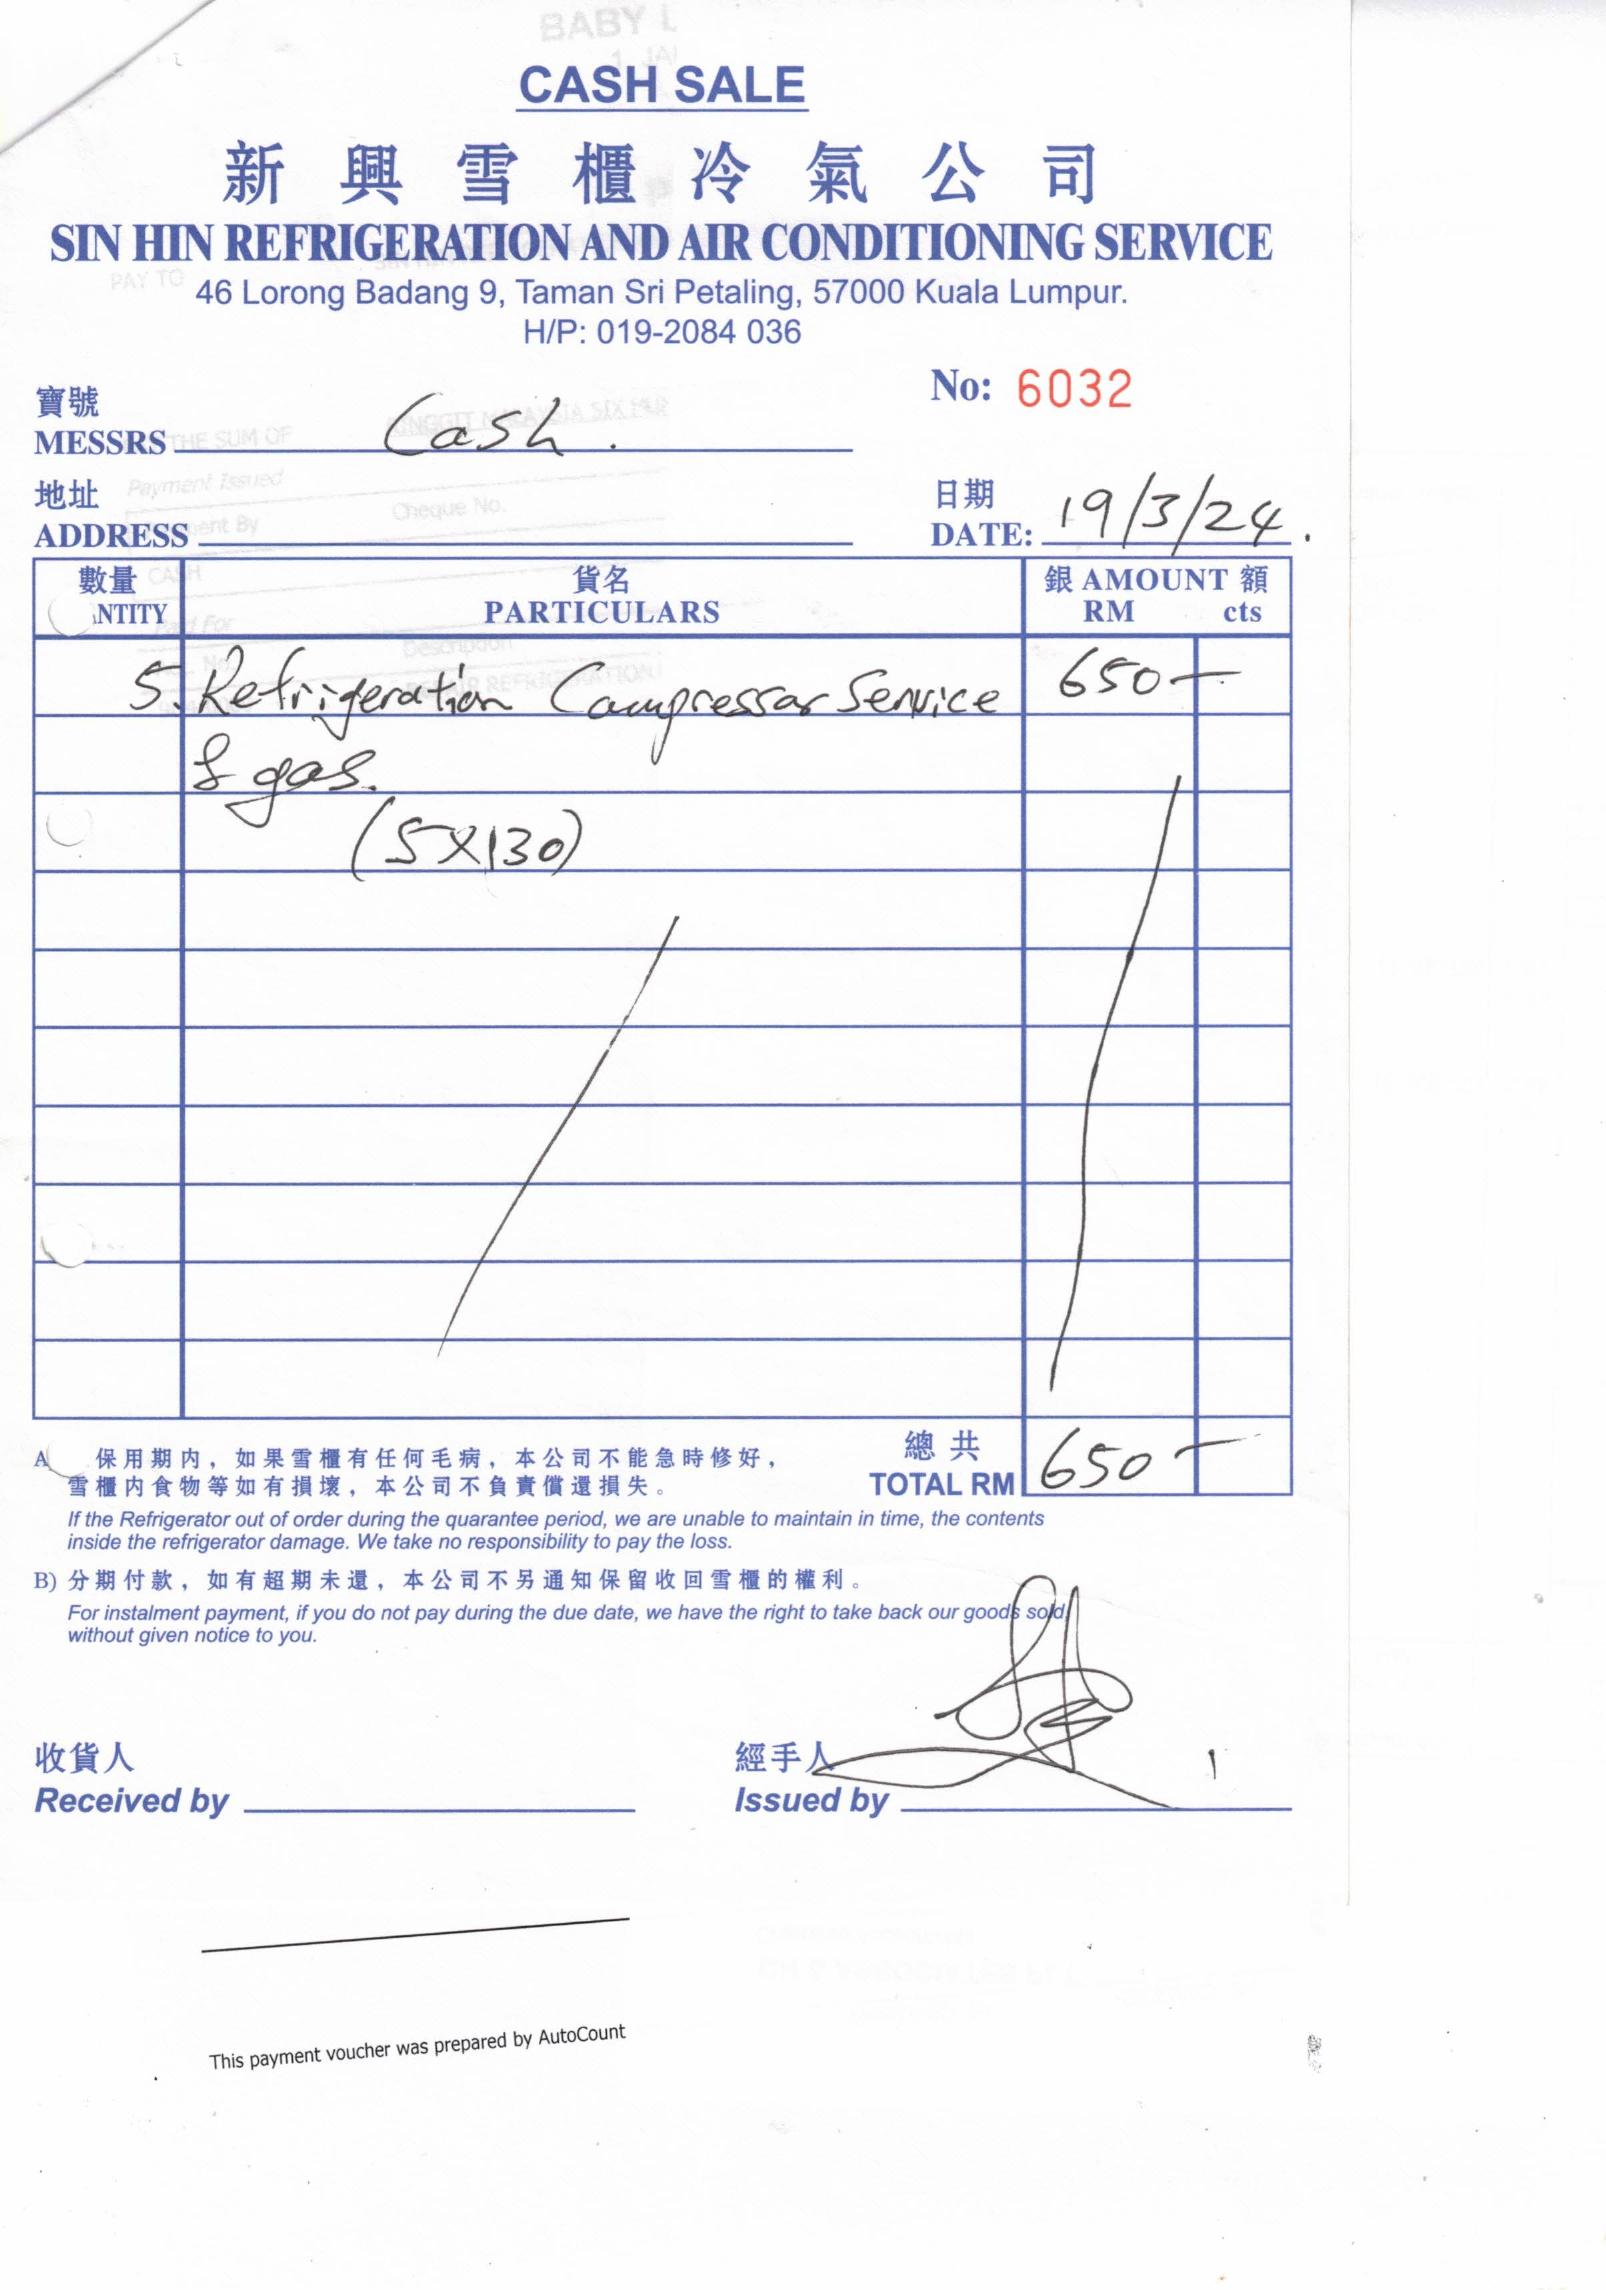 BABY L
1 JAN
CASH SALE
新興雪櫃冷氣公司
SIN HIN REFRIGERATION AND AIR CONDITIONING SERVICE
PAY TO
46 Lorong Badang 9, Taman Sri Petaling, 57000 Kuala Lumpur.
H/P: 019-2084 036
No: 6032
寶號
MESSRS Cash.
THE SUM OF
RINGGIT MALAYSIA SIX HUN
地址
ADDRESS
Payment Issued
Payment By
Cheque No.
日期
DATE: 19/3/24.
CASH
數量 貨名 銀 AMOUNT 額
NTITY PARTICULARS RM cts
Paid For
Description
REPAIR REFRIGERATION
5. Refrigeration Compressor Service 650 —
& gas.
(5X130)
總共
TOTAL RM 650 —
A 保用期内，如果雪櫃有任何毛病，本公司不能急時修好，
雪櫃内食物等如有損壞，本公司不負責償還損失。
If the Refrigerator out of order during the quarantee period, we are unable to maintain in time, the contents
inside the refrigerator damage. We take no responsibility to pay the loss.
B) 分期付款，如有超期未還，本公司不另通知保留收回雪櫃的權利。
For instalment payment, if you do not pay during the due date, we have the right to take back our goods sold,
without given notice to you.
收貨人
Received by
經手人
Issued by
This payment voucher was prepared by AutoCount